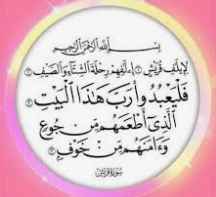 بِسْمِ ٱللَّهِ ٱلرَّحْمَٰنِ ٱلرَّحِيمِ
لِإِيلَٰفِ قُرَيْشٍ ۝ إِۦلَٰفِهِمْ رِحْلَةَ ٱلشِّتَآءِ وَٱلصَّيْفِ ۝
فَلْيَعْبُدُوا۟ رَبَّ هَٰذَا ٱلْبَيْتِ ۝
ٱلَّذِىٓ أَطْعَمَهُم مِّن جُوعٍ
وَءَامَنَهُم مِّنْ خَوْفٍۭ ۝
سورة قريش